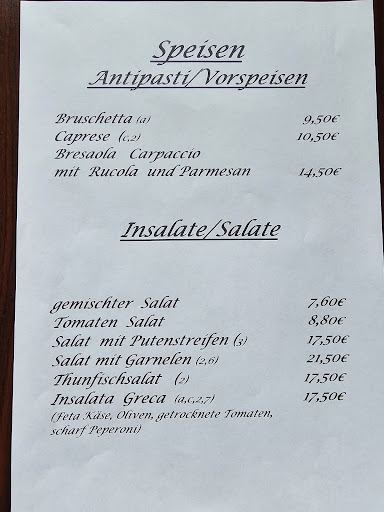 Speisen
Antipasti/Vorspeisen
Bruschetta (a) 9,50€
Caprese (c,2) 10,50€
Bresaola Carpaccio
mit Rucola und Parmesan 14,50€
Insalate/Salate
gemischter Salat 7,60€
Tomaten Salat 8,80€
Salat mit Putenstreifen (3) 17,50€
Salat mit Garnelen (2,6) 21,50€
Thunfischsalat (2) 17,50€
Insalata Greca (a,c,2,7) 17,50€
(Feta Käse, Oliven, getrocknete Tomaten,
scharf Peperoni)